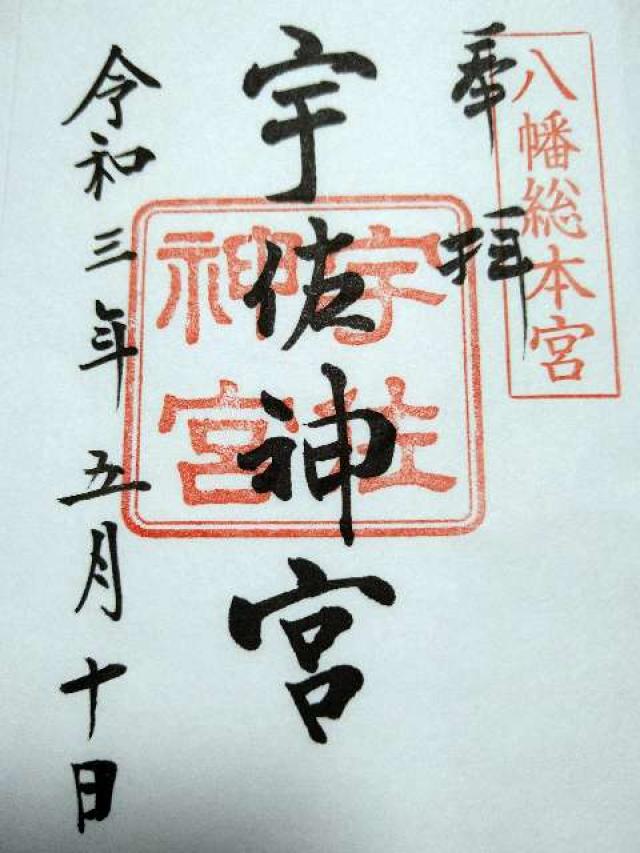 八幡総本宮
奉拝
宇佐神宮
宇佐
神宮
令和三年五月十日